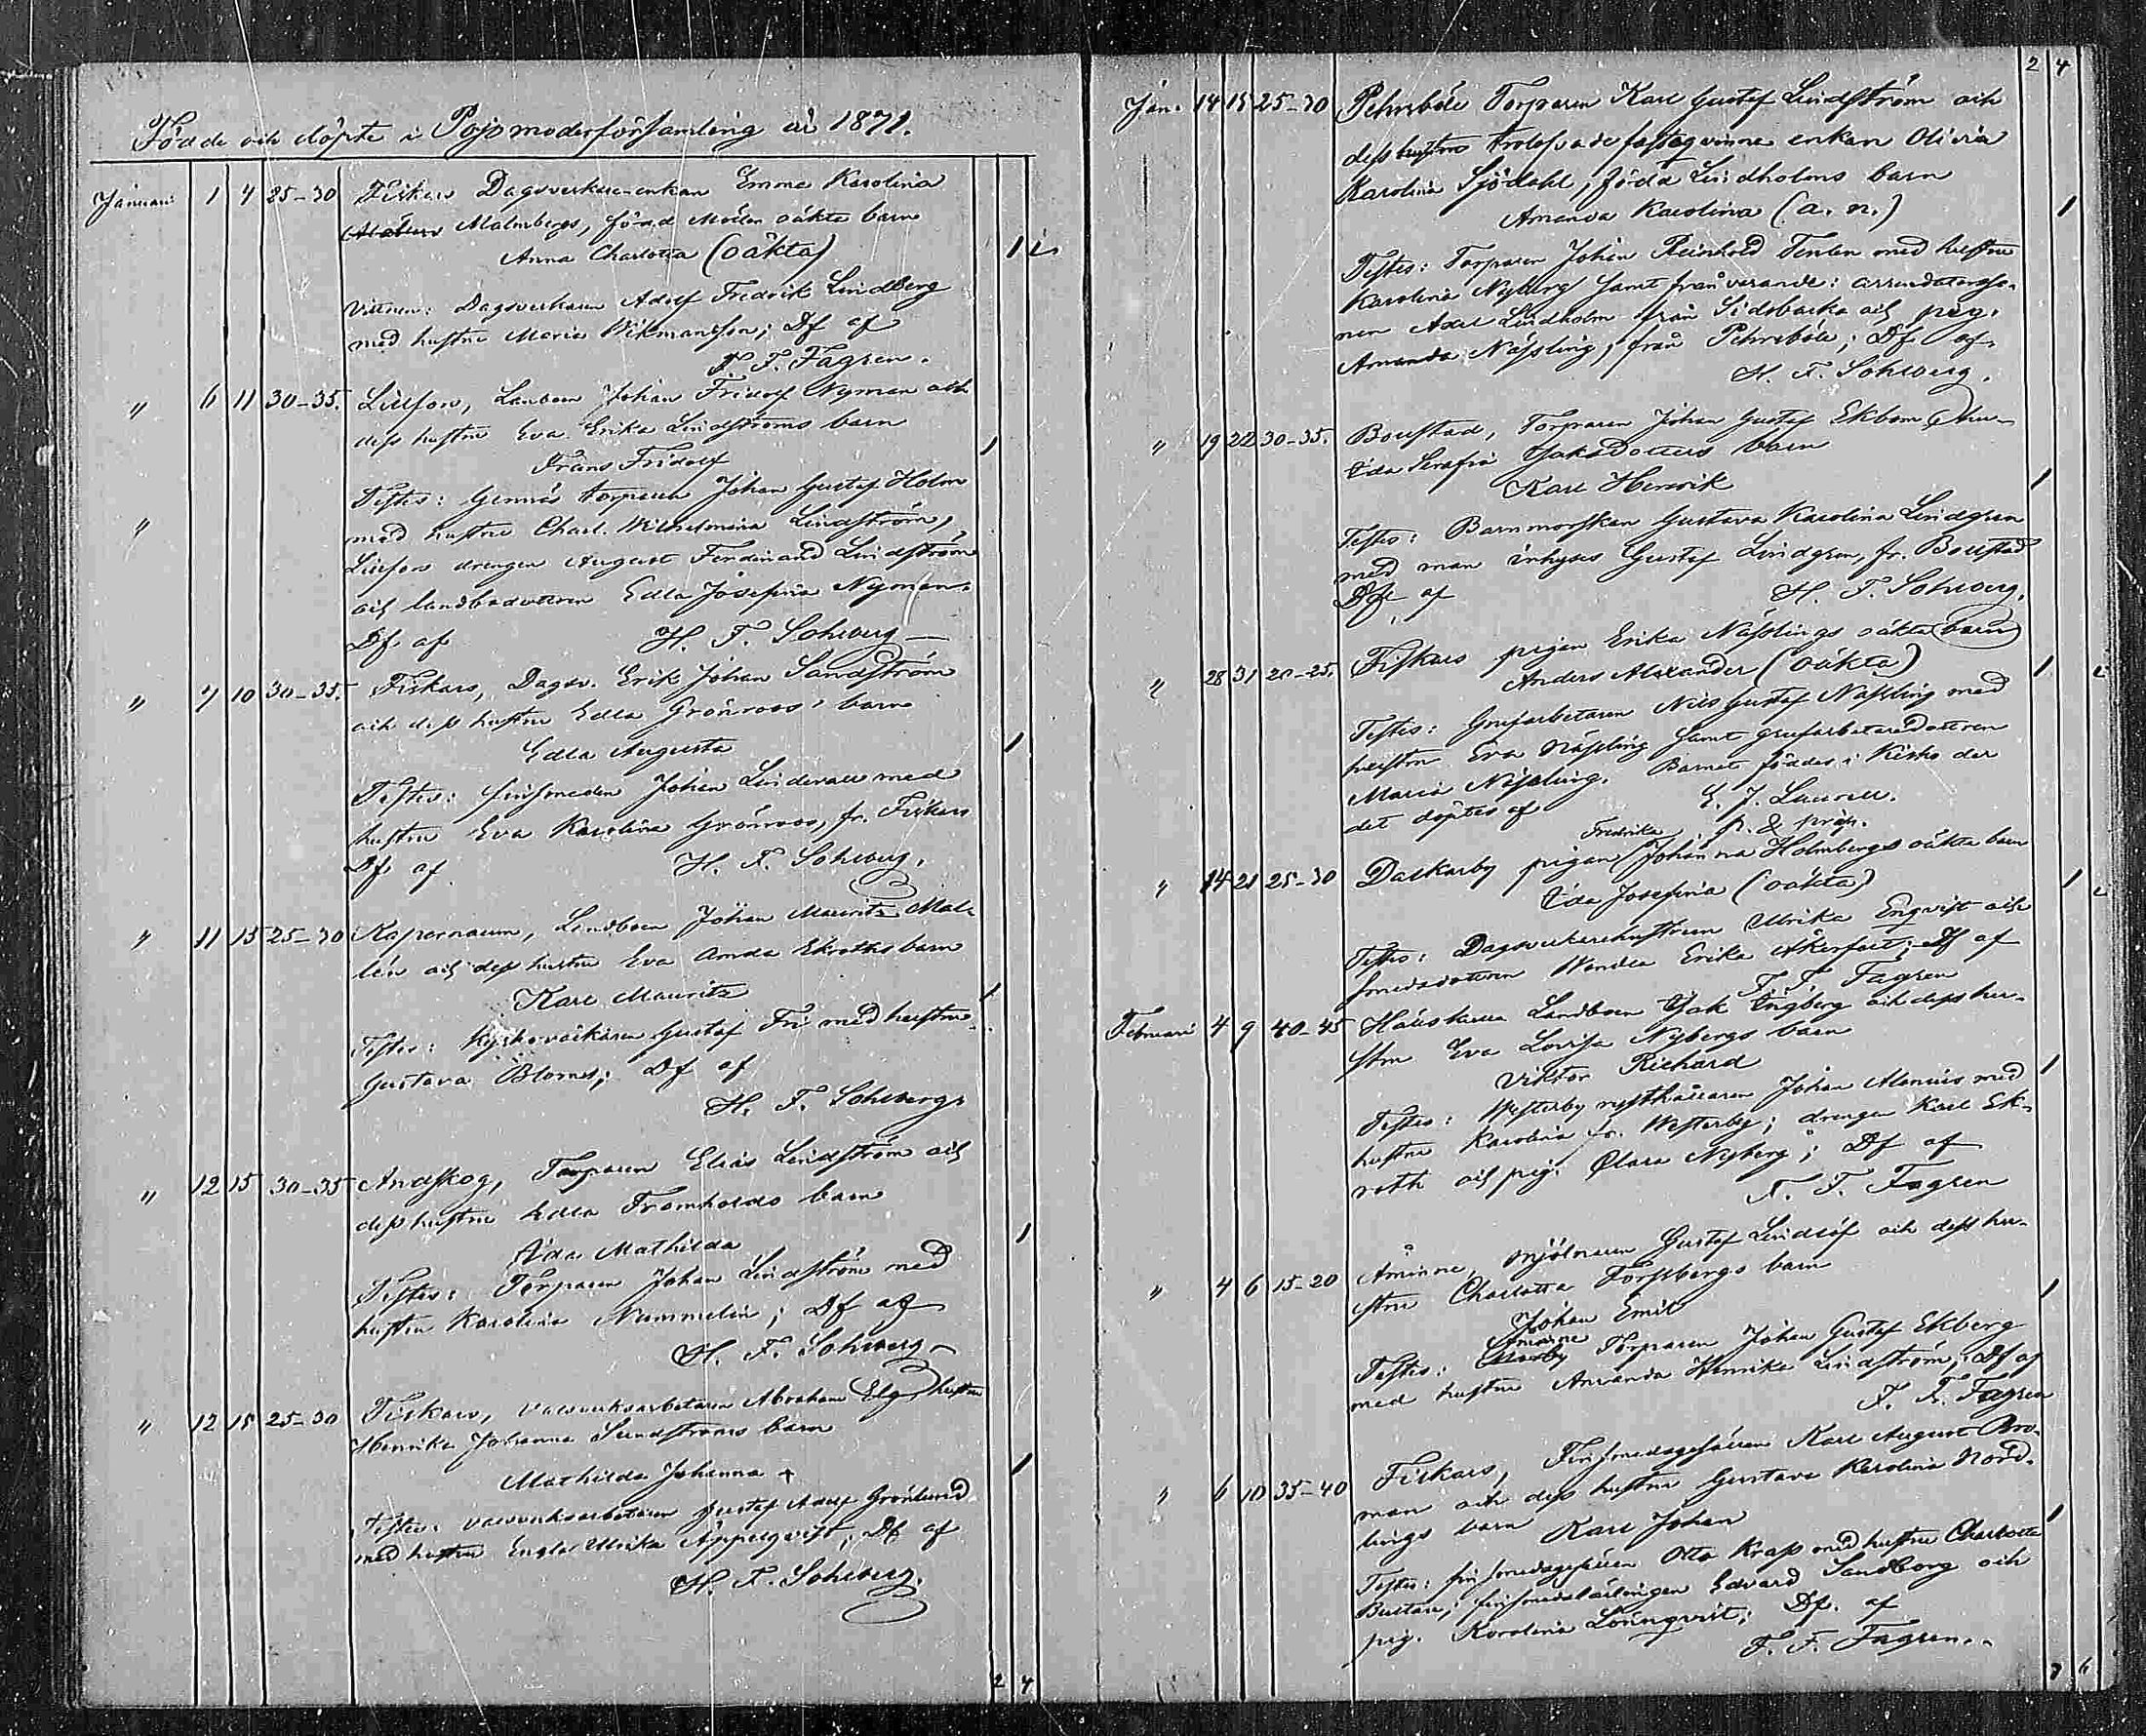 Födde och döpte i Pojo moderförsamling år 1871.
Januari 1 4 25-30 Fiskars Dagsverkare-enkan Emma Karolina
Malmbergs, född Molin oäkta barn
Anna Charlotta (oäkta) 1
Vittnen: Dagsverkaren Adolf Fredrik Lindberg
med hustru Maria Wikmansson; Df af
F. F. Fagren.
" 6 11 30-35. Lillfors, Landboen Johan Fridolf Nyman och
dess hustru Eva Erika Lindströms barn
Frans Fridolf 1
Testes: Gennäs torparen Johan Gustaf Holm
" med hustru Charl. Wilhelmina Lindström,
Lillfors drengen August Ferdinand Lindström
och landbodottren Edla Josefina Nyman.
Df. af H. F. Sohlberg
" 7 10 30-35. Fiskars, Dagsv. Erik Johan Sandström
och dess hustru Edla Grönroos' barn
Edla Augusta 1
Testes: finsmeden Johan Lindevall med
hustru Eva Karolina Grönroos, fr. Fiskars
Df. af H. F. Sohlberg.
" 11 15 25-30 Kapernaum, Landboen Johan Mauritz Mal-
lén och dess hustru Eva Amda Ekroths barn
Karl Mauritz 1
Testes: Kyrkovaktaren Gustaf Fri med hustru
Gustava Bloms; Df af
H. F. Sohlberg
" 12 15 30-35 Andskog, Torparen Elias Lindström och
dess hustru Edla Fromholds barn
Ida Mathilda 1
Testes: Torparen Johan Lindström med
hustru Karolina Nummelin; Df af
H. F. Sohlberg
" 12 15 25-30 Fiskars, valsverksarbetaren Abraham Elg hustru
Henrika Johanna Sundströms barn
Mathilda Johanna + 1
Testes: valsverksarbetaren Gustaf Adolf Grönlund
med hustru Engla Ulrika Appelqvist, Df af
H. F. Sohlberg.
2 4
2 4
Jan. 14 15 25-30 Pehrsböle Torparen Karl Gustaf Lindström och
dess hustru trolofvade fästeqvinna enkan Olivia
Karolina Sjödahl, född Lindholms barn
Amanda Karolina (a. n.) 1
Testes: Torparen Johan Reinhold Tenlen med hustru
Karolina Nyberg samt frånvarande: arrendatorsso-
nen Axel Lindholm från Sidsbacka och pig.
Amanda Nässling, från Pehrsböle; Df af.
H. F. Sohlberg.
" 19 22 30-35. Bollstad, Torparen Johan Gustaf Ekbom
Ida Serafia Jaksdotters barn
Karl Henrik 1
Testes: Barnmorskan Gustava Karolina Lindgren
med man inhyses Gustaf Lindgren, fr. Bollstad
Df af H. F. Sohlberg.
" 28 31 20-25. Fiskars pigan Erika Nässlings oäkta barn
Anders Alexander (oäkta) 1
Testes: Grufarbetaren Nils Gustaf Nässling med
hustru Eva Nässling samt grufarbetaredottren
Maria Nässling. Barnet föddes i Kisko der
det döptes af G. J. Laurell.
p. & præp.
Fredrika
" 14 21 25-30 Daskarby pigan Johanna Holmbergs oäkta barn
Ida Josefina (oäkta) 1
Testes: Dagsverkarehustrun Ulrika Engqvist och
smedsdottren Wendla Erika Åkerfelt; Df af
F. F. Fagren
Februari 4 9 40-45 Landboen Isak Engberg och dess hu-
stru Eva Lovisa Nybergs barn
Viktor Richard 1
Testes: Westerby rusthållaren Johan Alenius med
hustru Karolina fr. Westerby; drengen Karl Ek-
roth och pig. Clara Nyberg; Df af
F. F. Fagren
" 4 6 15-20 Åminne, mjölnaren Gustaf Lindlöf och dess hu-
stru Charlotta Forssbergs barn
Johan Emil 1
Testes: Åminne Torparen Johan Gustaf Ekberg
med hustru Amanda Henrika Lindström; Df af
F. F. Fagren
" 6 10 35-40 Fiskars, Finsmedsgesällen Karl August Bro-
man och dess hustru Gustava Karolina Nord-
lings barn Karl Johan 1
Testes: finsmedsgesällen Otto Krap med hustru Charlotta
finsmedslärlingen Edvard Sandborg och
pig. Karolina Lönnqvist; Df. af
F. F. Fagren..
6